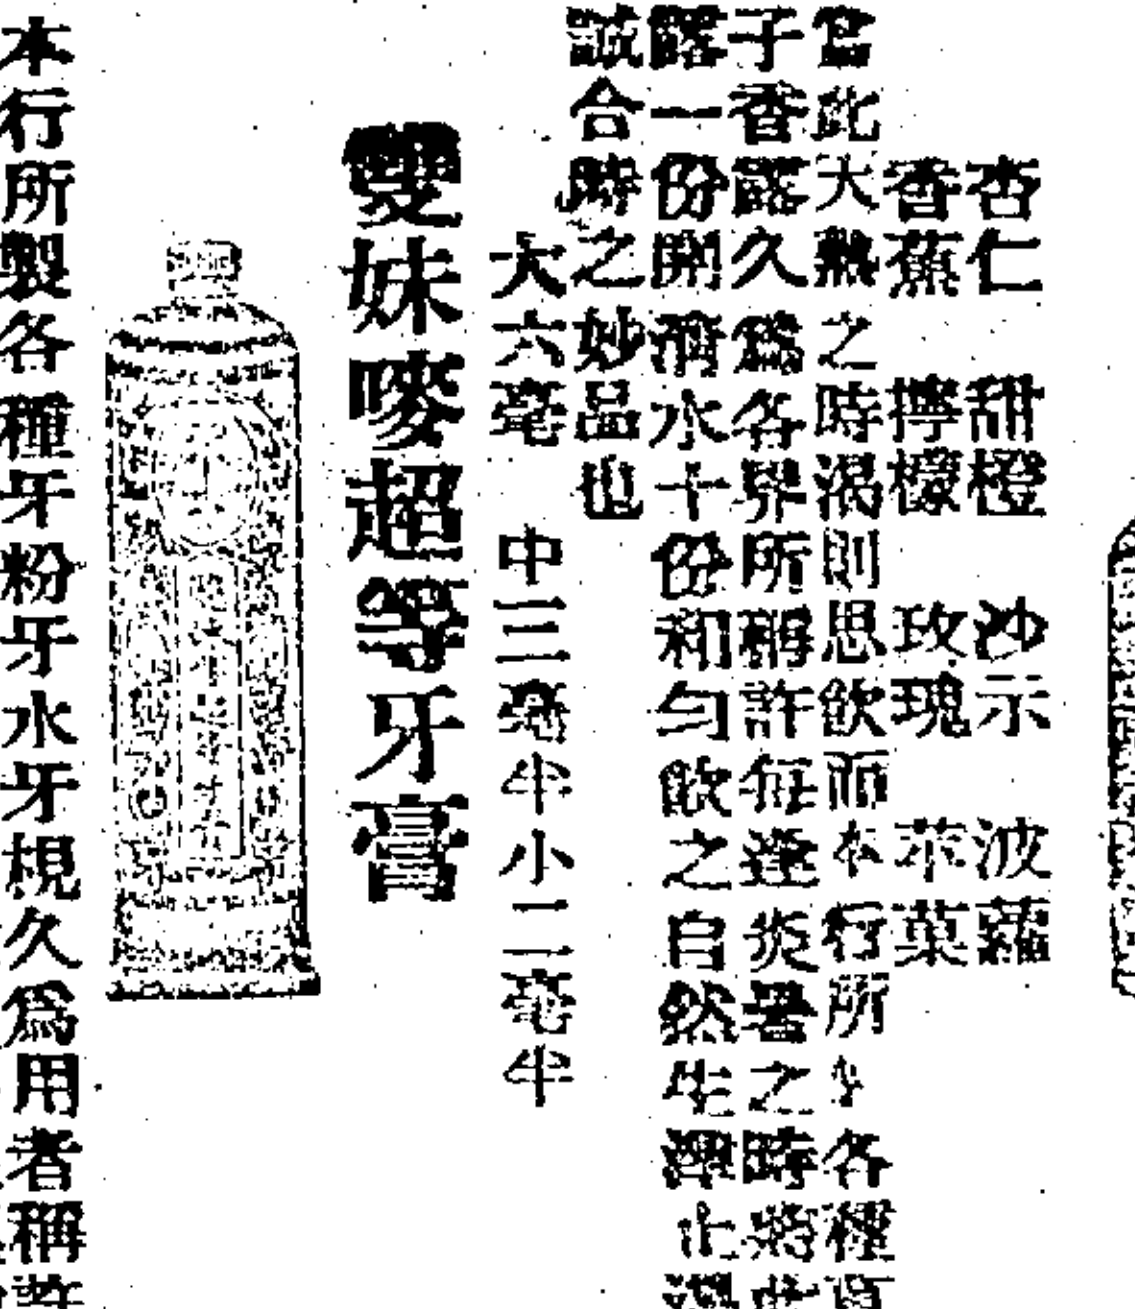 杏仁 甜橙 沙示 波蘿
香蕉 擰檬 玫瑰 苹菓
當此大熱之時渴則思飲而本行所 各種菓
子香露久爲各界所稱許每逢炎暑之時將此
露一份開清水十份和勻飲之自然生津止渴
誠合時之妙品也
大六毫 中三毫半小二毫半
雙妹嘜超等牙膏
本行所製各種牙粉牙水牙梘久爲用者稱許